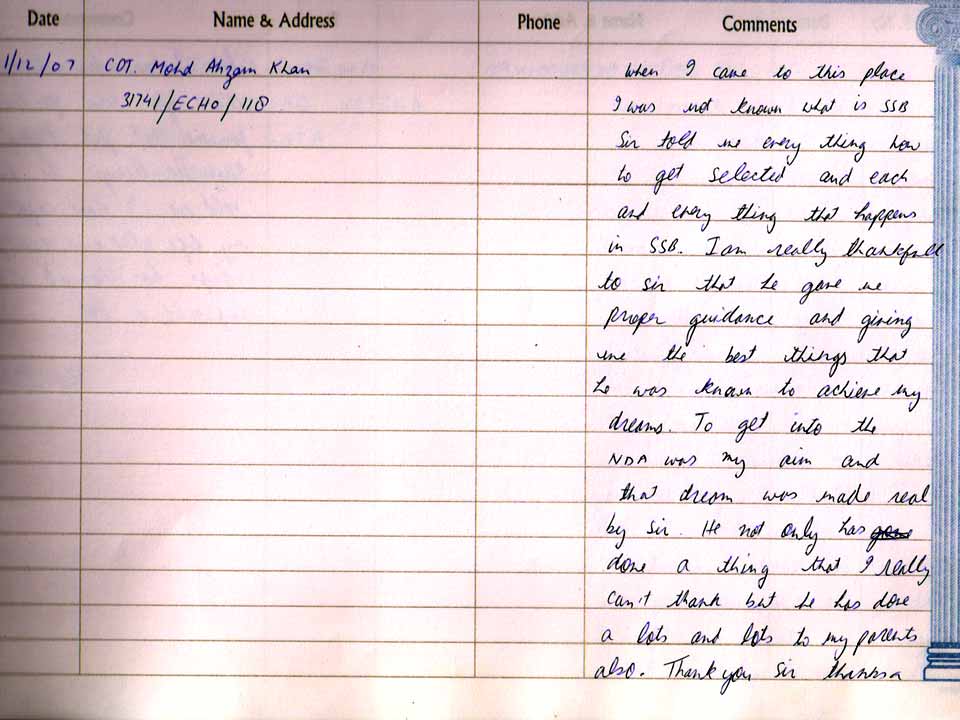 Date Name & Address Phone Comments
1/12/07 CDT. Mohd Ahzam Khan
31741/ECHO/118
When I came to this place
I was not known what is SSB
Sir told me every thing how
to get selected and each
and every thing that happens
in SSB. I am really thankfull
to sir that he gave me
proper guidance and giving
me the best things that
he was known to achieve my
dreams. To get into the
NDA was my aim and
that dream was made real
by Sir. He not only has
done a thing that I really
can't thank but he has done
a lots and lots to my parents
also. Thank you Sir